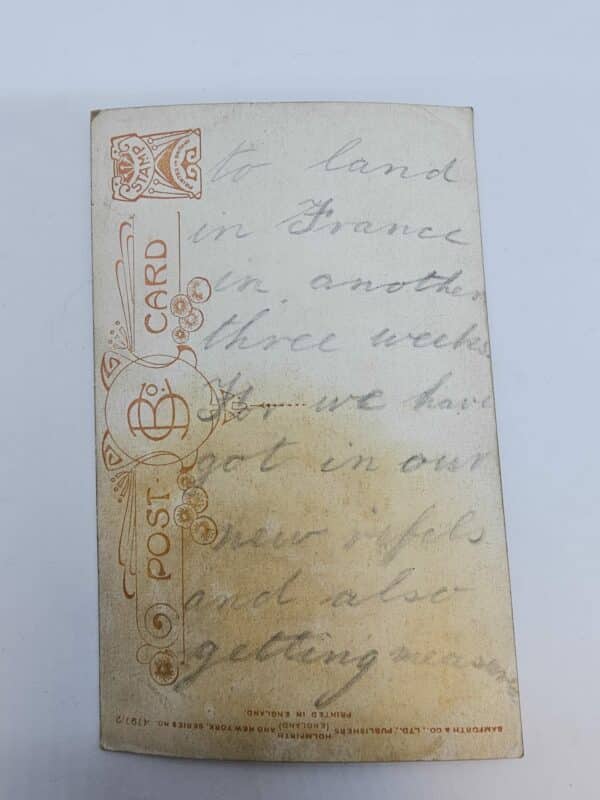 to land
in France
in another
three weeks
For we have
got in our
new rifels
and also
getting measure
POST CARD
B Co.
STAMP
BAMFORTH & CO., LTD., PUBLISHERS (ENGLAND) AND NEW YORK, SERIES NO. 4797/2
HOLMFIRTH
PRINTED IN ENGLAND